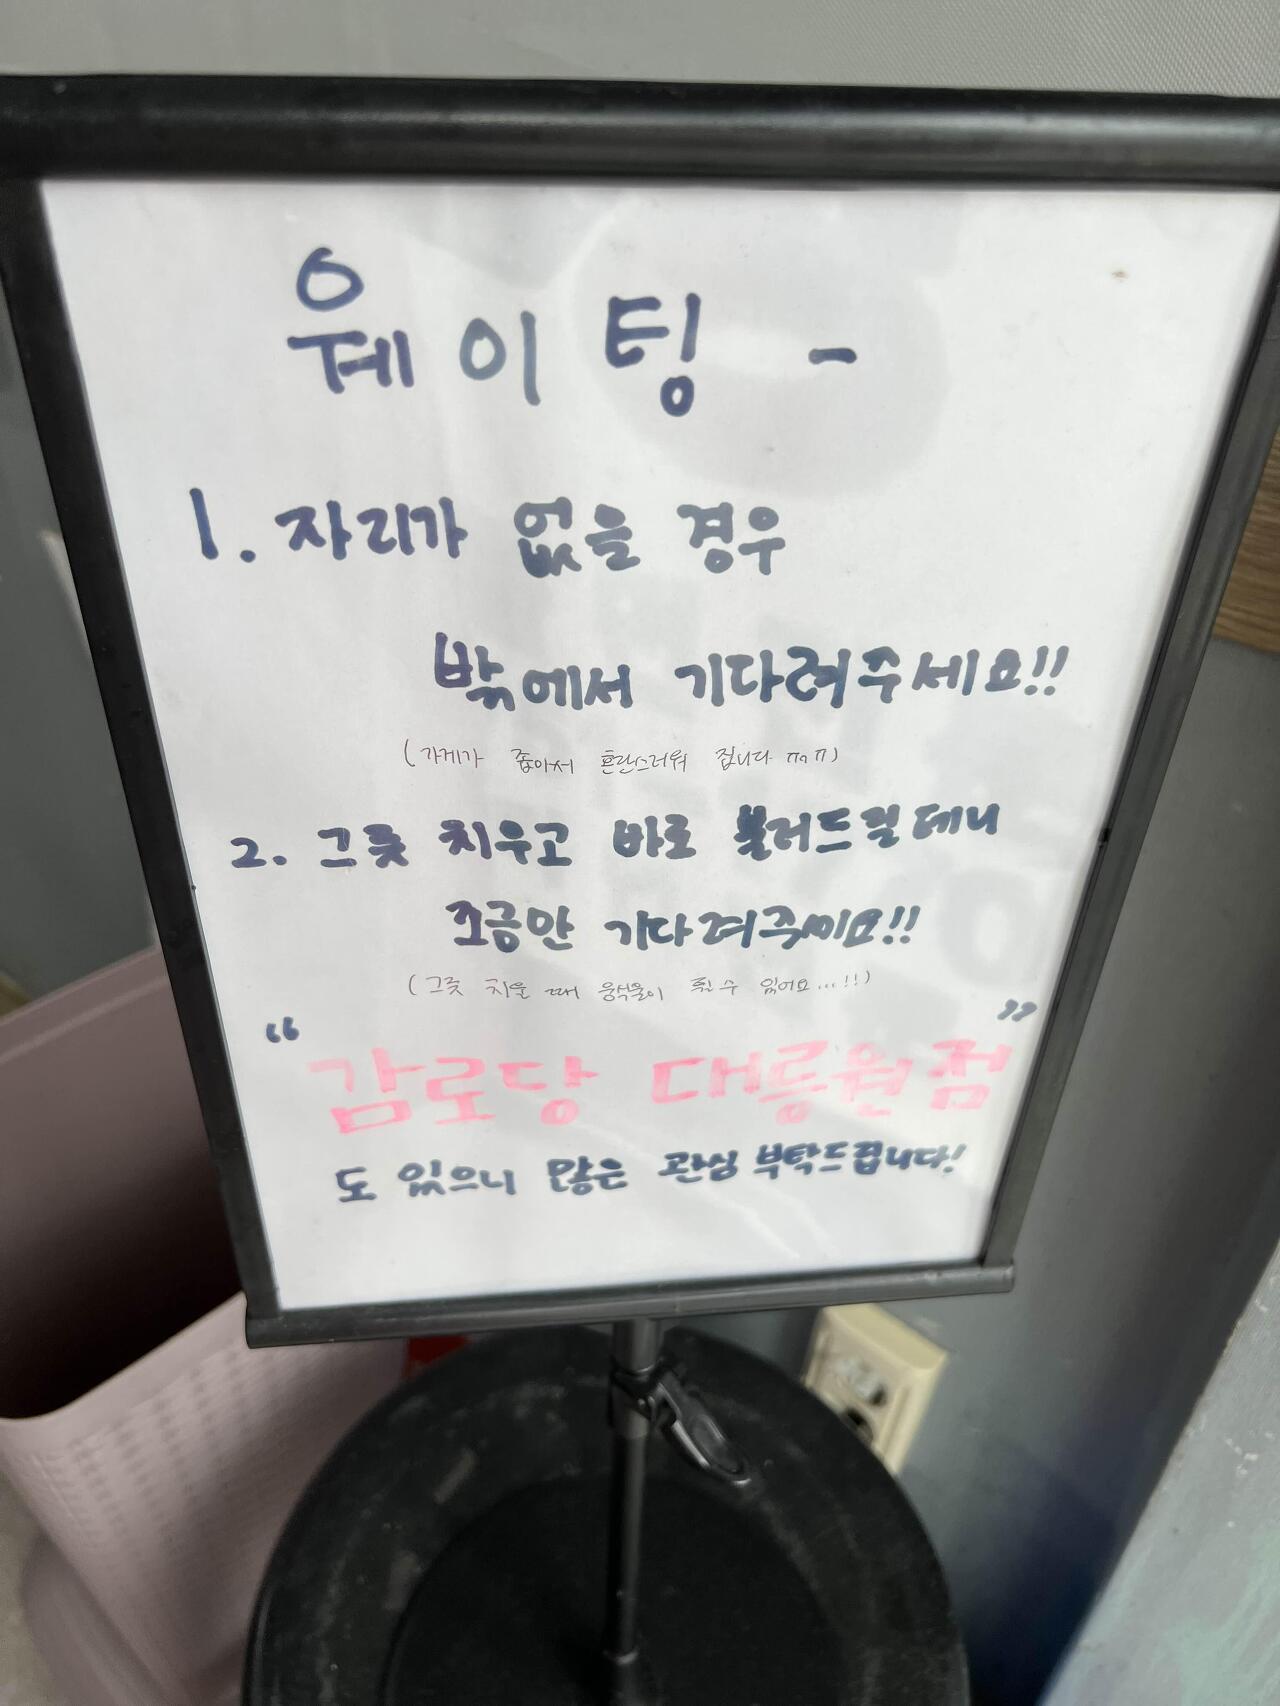 웨이팅 -
1. 자리가 없을 경우
밖에서 기다려주세요!!
(가게가 좁아서 혼란스러워 집니다 ㅠㅁㅠ)
2. 그릇 치우고 바로 불러드릴테니
조금만 기다려주세요!!
(그릇 치울 때 음식물이 튈 수 있어요...!!)
“감로당 대릉원점”
도 있으니 많은 관심 부탁드립니다!